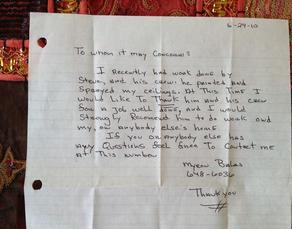 6-29-10
To whom it may Concern:
I Recently had work done by
Steve and his crew he painted and
sprayed my ceilings. At This Time I
would Like To Thank him and his crew
for a job well done, and I would
Strongly Recomend him to do work on
my, or anybody else's home
If you or anybody else has
any Questions feel free To Contact me
At This number
Myron
648-6036
Thank you